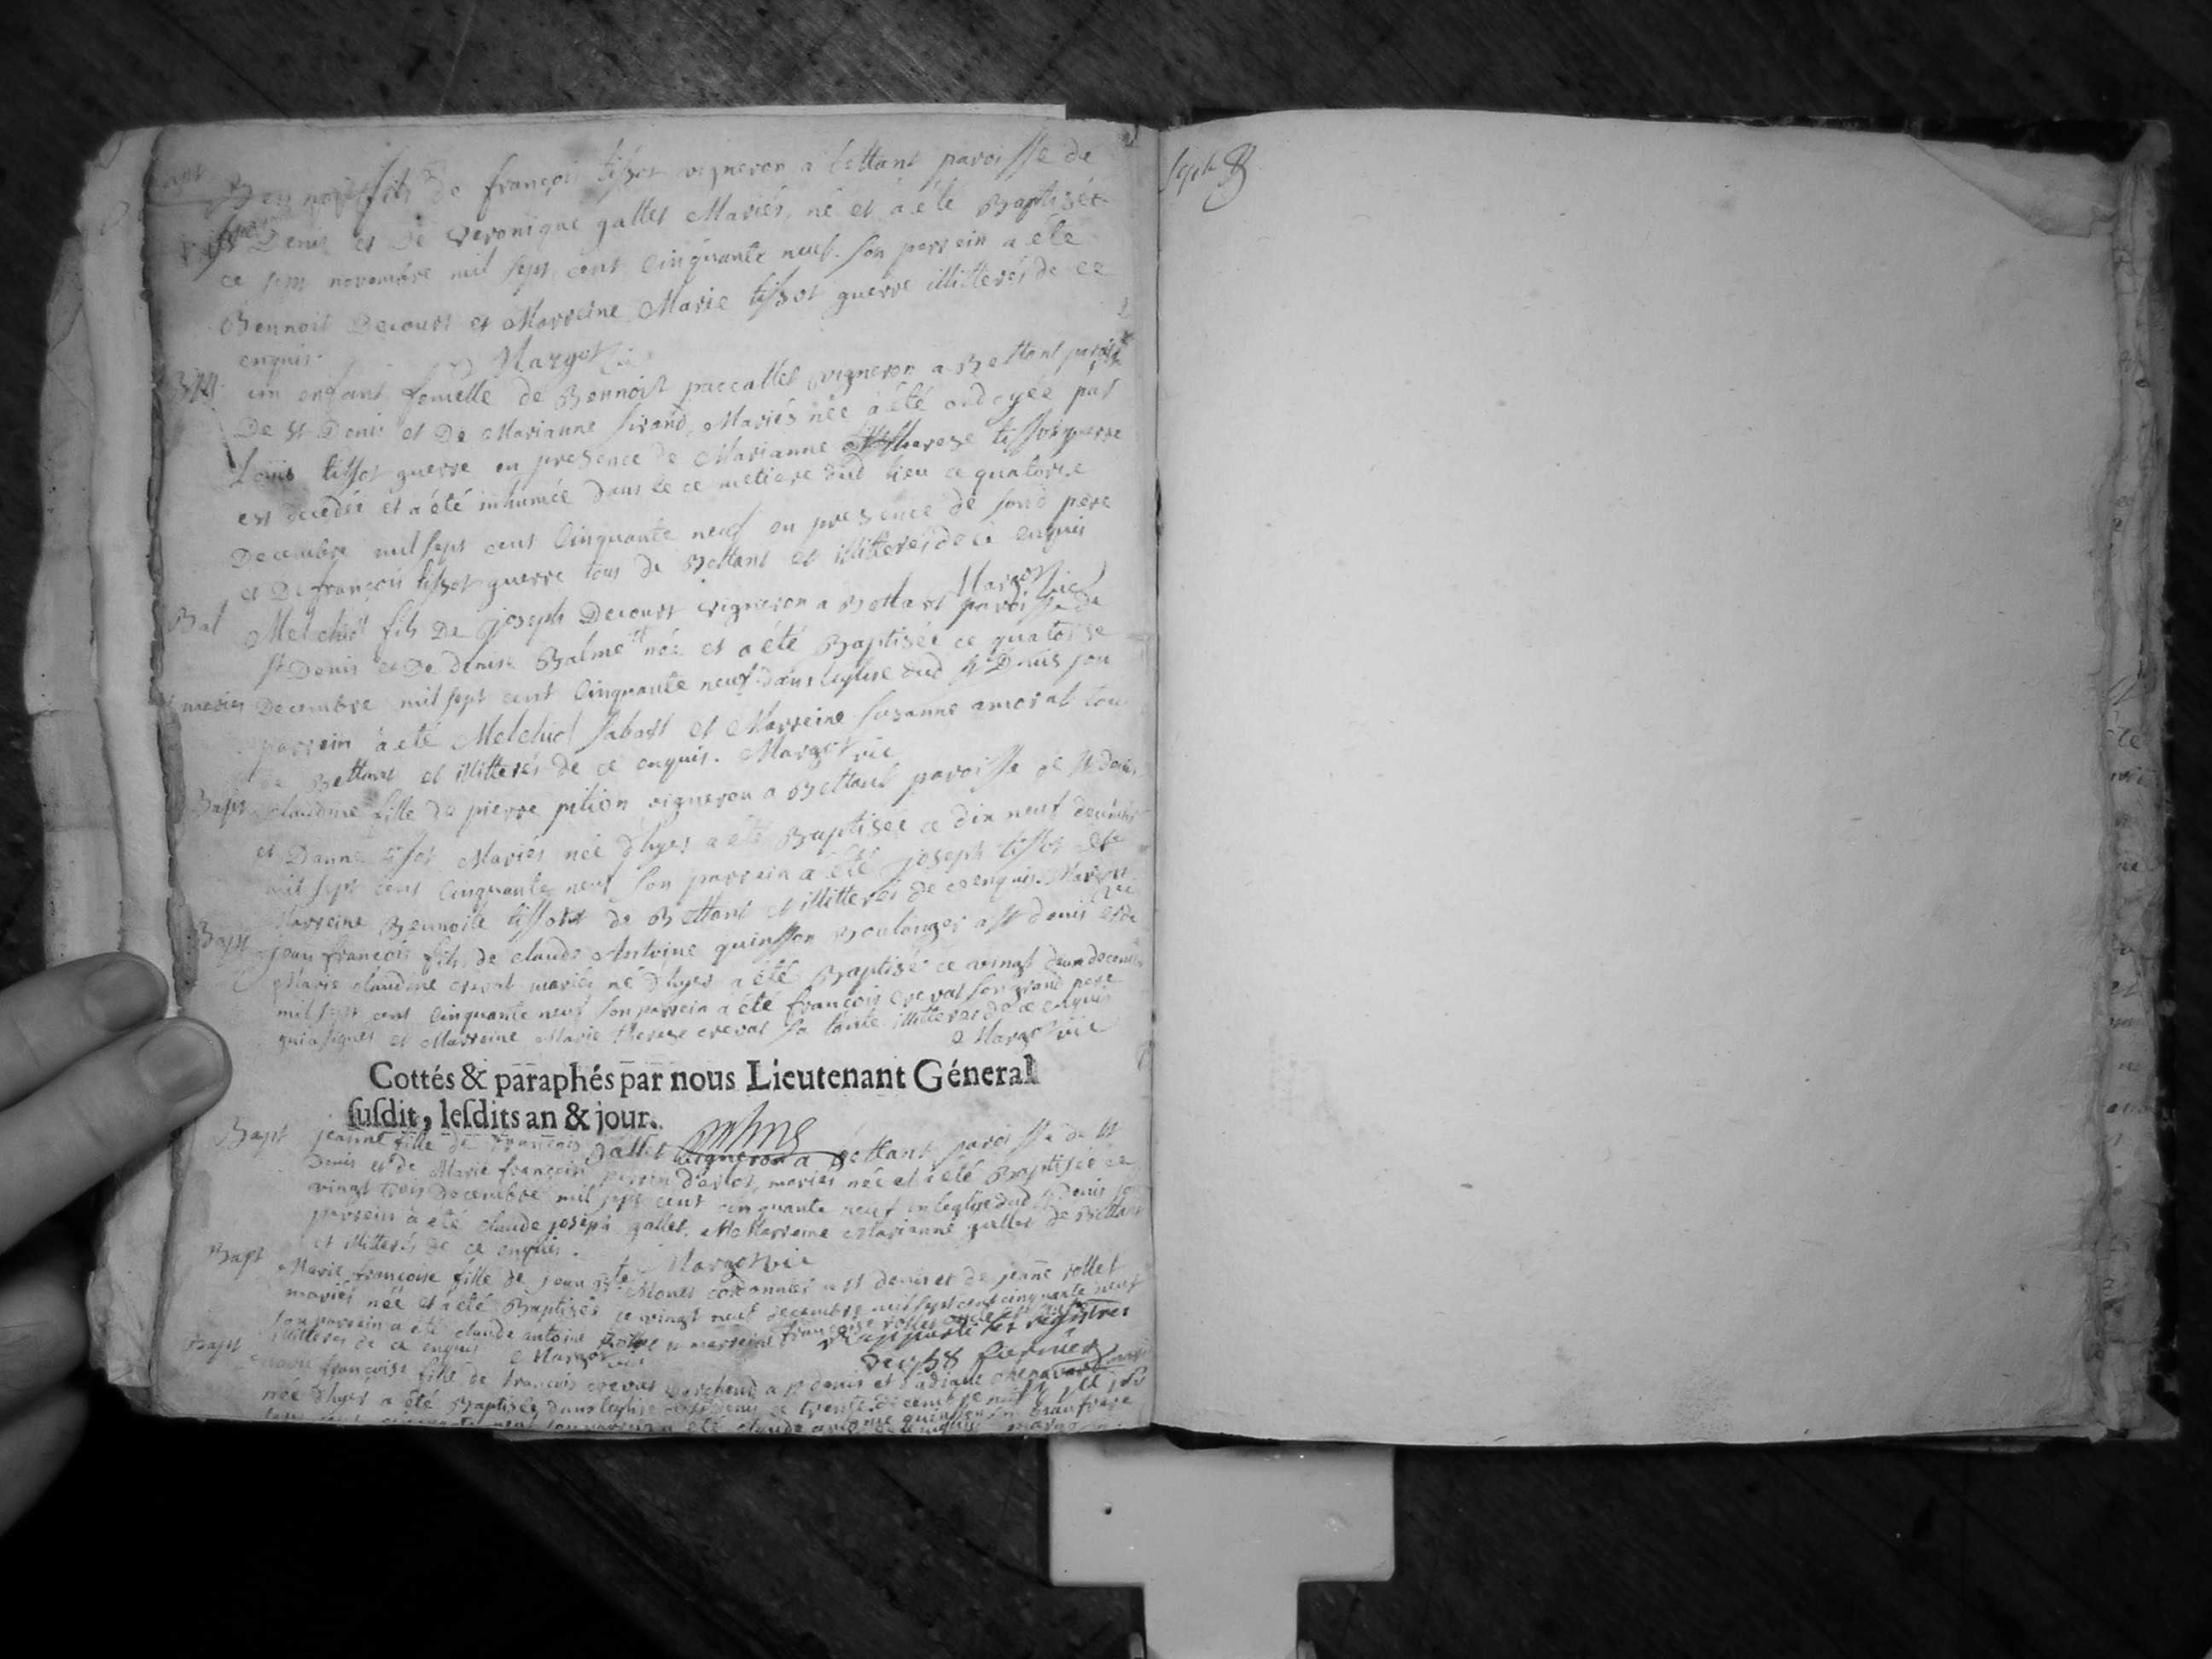 Bennoit fils de françois tissot vigneron a bettant paroisse de
St Denis et De veronique gallet Mariés, né et a été Baptisé
ce sept novembre mil sept cent Cinquante neuf. son parrein a été
Bennoit Decourt et Marreine Marie tissot guerre illitterés de ce
enquis. Margot vic
un enfant femelle de Bennoit paccallet vigneron a Bettant paroisse
De St Denis et De Marianne sirand Mariés née a été ondoyée par
Louis tissot guerre en presence de Marianne therese tissot guerre
est decedée et a été inhumée dans le cemetiere dud lieu ce quatorze
Decembre mil sept cent Cinquante neuf en presence de sond pere
et De françois tissot guerre tous de Bettant et illitterés de ce enquis
Margot vic
Bat Melchiol fils De joseph Decourt vigneron a Bettant paroisse de
St Denis et De denise Balme née et a été Baptisée ce quatorze
mariés Decembre mil sept cent Cinquante neuf dans leglise dud St Denis son
parrein a été Melchiol sabost et Marreine suzanne amoral tous
de Bettant et illitterés de ce enquis. Margot vic
Bapt claudine fille de pierre pition vigneron a Bettant paroisse de St denis
et Danne tissot Mariés née d'hyer a été Baptisée ce dix neuf decembre
mil sept cent Cinquante neuf son parrein a été joseph tissot et
Marreine Bennoite tissot de Bettant et illitterés de ce enquis. Margot
vic
Bapt jean françois fils de claude Antoine quinsson Boulanger a St denis et de
Marie claudine crevat mariés né d'hyer a été Baptisé ce vingt deux decembre
mil sept cent Cinquante neuf son parrein a été françois crevat son grand pere
qui a signet et Marreine Marie therese crevat sa tante illitterés de ce enquis
Margot vic
Cottés & paraphés par nous Lieutenant Géneral
susdit, lesdits an & jour.
Bapt jeanne fille de françois gallet vigneron a Bettant paroisse de St
Denis et de Marie françoise perrin d'arlot, mariés née et a été Baptisée ce
vingt trois Decembre mil sept cent cinquante neuf en leglise dud St Denis son
parrein a été claude joseph gallet, Marreine Marianne gallet de Bettant
et illitterés de ce enquis. Margot vic
Bapt Marie françoise fille de jean Bte Monet cordonnier a St denis et de jeanne rollet
mariés née et a été Baptisée ce vingt neuf decembre mil sept cent cinquante neuf
son parrein a été claude antoine et marreine françoise rollet
illitterés de ce enquis Margot vic
Bapt Marie françoise fille de françois crevat marchand a St denis et
née d'hyer a été Baptisée dans leglise de St Denis ce trente decembre
sept cent cinquante neuf son parrein a été claude antoine quinsson
sept 8